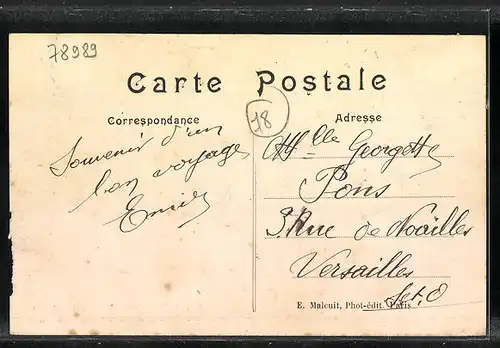 78989
Carte Postale
Correspondance
Souvenir d'un
bon voyage
18
Adresse
Mlle Georgette
Pons
3 Rue de Noailles
Versailles
S et O
E. Malcuit, Phot-édit. Paris